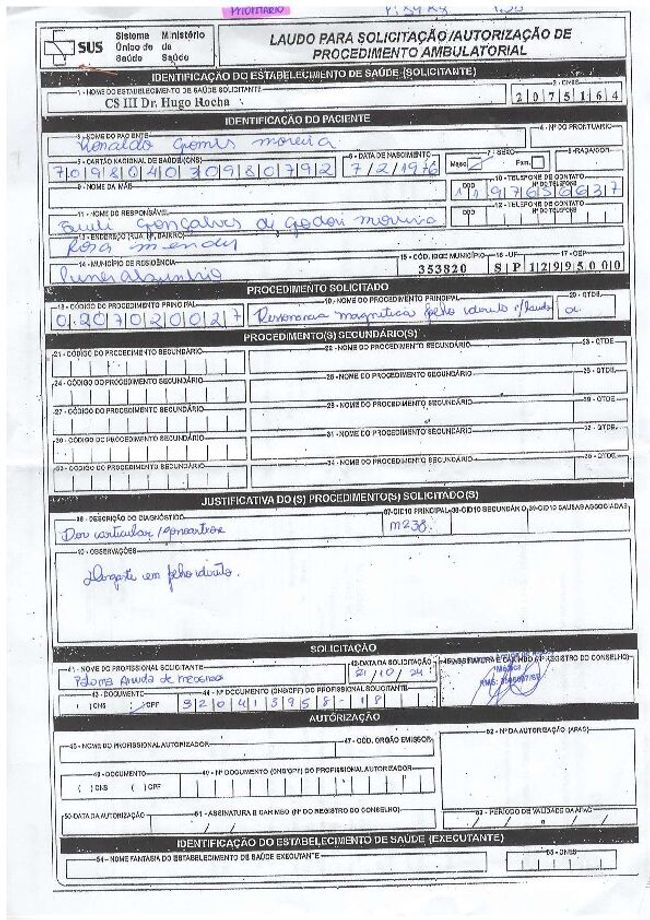 PRIORITÁRIO
SUS
Sistema Único de Saúde
Ministério da Saúde
LAUDO PARA SOLICITAÇÃO/AUTORIZAÇÃO DE PROCEDIMENTO AMBULATORIAL
IDENTIFICAÇÃO DO ESTABELECIMENTO DE SAÚDE (SOLICITANTE)
1 - NOME DO ESTABELECIMENTO DE SAÚDE SOLICITANTE
2 - CNES
CS III Dr. Hugo Rocha
2075164
IDENTIFICAÇÃO DO PACIENTE
3 - NOME DO PACIENTE
4 - Nº DO PRONTUÁRIO
Ronaldo Gomes moreira
5 - CARTÃO NACIONAL DE SAÚDE (CNS)
6 - DATA DE NASCIMENTO
7 - SEXO
8 - RAÇA/COR
709804030980792
7/2/1976
Masc.
Fem.
9 - NOME DA MÃE
10 - TELEFONE DE CONTATO
DDD
Nº DO TELEFONE
11 - NOME DO RESPONSÁVEL
12 - TELEFONE DE CONTATO
DDD
Nº DO TELEFONE
Gonçalves di Godoi moreira
13 - ENDEREÇO (RUA, Nº, BAIRRO)
Rosa mendes
14 - MUNICÍPIO DE RESIDÊNCIA
15 - CÓD. IBGE MUNICÍPIO
16 - UF
17 - CEP
353820
SP
12995000
PROCEDIMENTO SOLICITADO
18 - CÓDIGO DO PROCEDIMENTO PRINCIPAL
19 - NOME DO PROCEDIMENTO PRINCIPAL
20 - QTDE.
0207020027
Ressonancia magnetica c/laudo
PROCEDIMENTO(S) SECUNDÁRIO(S)
21 - CÓDIGO DO PROCEDIMENTO SECUNDÁRIO
22 - NOME DO PROCEDIMENTO SECUNDÁRIO
23 - QTDE
24 - CÓDIGO DO PROCEDIMENTO SECUNDÁRIO
25 - NOME DO PROCEDIMENTO SECUNDÁRIO
26 - QTDE.
27 - CÓDIGO DO PROCEDIMENTO SECUNDÁRIO
28 - NOME DO PROCEDIMENTO SECUNDÁRIO
29 - QTDE
30 - CÓDIGO DO PROCEDIMENTO SECUNDÁRIO
31 - NOME DO PROCEDIMENTO SECUNDÁRIO
32 - QTDE.
33 - CÓDIGO DO PROCEDIMENTO SECUNDÁRIO
34 - NOME DO PROCEDIMENTO SECUNDÁRIO
35 - QTDE.
JUSTIFICATIVA DO(S) PROCEDIMENTO(S) SOLICITADO(S)
36 - DESCRIÇÃO DO DIAGNÓSTICO
37-CID10 PRINCIPAL
38-CID10 SECUNDÁRIO
39-CID10 CAUSAS ASSOCIADAS
Dor articular /gonoartrose
M238
40 - OBSERVAÇÕES
SOLICITAÇÃO
41 - NOME DO PROFISSIONAL SOLICITANTE
42-DATA DA SOLICITAÇÃO
45-ASSINATURA E CARIMBO (Nº REGISTRO DO CONSELHO)
Paloma Arruda de
21/10/24
43 - DOCUMENTO
44 - Nº DOCUMENTO (CNS/CPF) DO PROFISSIONAL SOLICITANTE
( ) CNS
( ) CPF
320413958-18
AUTORIZAÇÃO
46 - NOME DO PROFISSIONAL AUTORIZADOR
47 - COD. ORGÃO EMISSOR
52 - Nº DA AUTORIZAÇÃO (APAC)
48 - DOCUMENTO
49 - Nº DOCUMENTO (CNS/CPF) DO PROFISSIONAL AUTORIZADOR
( ) CNS ( ) CPF
50-DATA DA AUTORIZAÇÃO
51 - ASSINATURA E CARIMBO (Nº DO REGISTRO DO CONSELHO)
53 - PERÍODO DE VALIDADE DA APAC
IDENTIFICAÇÃO DO ESTABELECIMENTO DE SAÚDE (EXECUTANTE)
54 - NOME FANTASIA DO ESTABELECIMENTO DE SAÚDE EXECUTANTE
55 - CNES